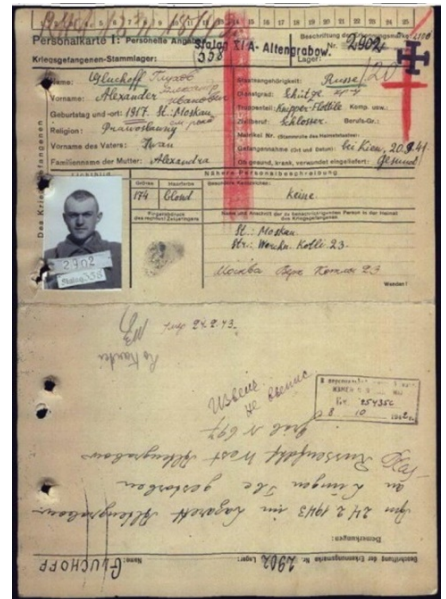 Personalkarte I: Personelle Angaben
Kriegsgefangenen-Stammlager: Stalag XI A - Altengrabow.
Beschriftung der Erkennungsmarke
Nr. 2902
Lager:
338
Name: Gluchoff Глухов
Vorname: Alexander Александр
Geburtstag und -ort: 1917. St.: Moskau.
Religion: Prawoslawny
Vorname des Vaters: Iwan
Familienname der Mutter: Alexandra
Staatsangehörigkeit: Russe
Dienstgrad: Schütze
Truppenteil: Knipper-Flottile Komp. usw.:
Zivilberuf: Schlosser. Berufs-Gr.:
Matrikel Nr. (Stammrolle des Heimatstaates):
Gefangennahme (Ort und Datum): bei Kiew, 20.9.41
Ob gesund, krank, verwundet eingeliefert: gesund
Des Kriegsgefangenen
Lichtbild
Nähere Personalbeschreibung
Größe
Haarfarbe
Besondere Kennzeichen:
174
blond
Keine
Fingerabdruck
des rechten Zeigefingers
Name und Anschrift der zu benachrichtigenden Person in der Heimat
des Kriegsgefangenen
St.: Moskau.
Str.: Werchn. Kotli 23.
Москва Верх Котлы 23
Wenden!
2902
24.2.43.
Извещ
не
254356
8 10
Grab N 697
Russenfdhf West Altengrabow
an Lungen Tbc gestorben
Den 24.2.1943 im Lazarett Altengrabow
Bemerkungen:
Beschriftung der Erkennungsmarke Nr. 2902 Lager:
Name: GLUCHOFF